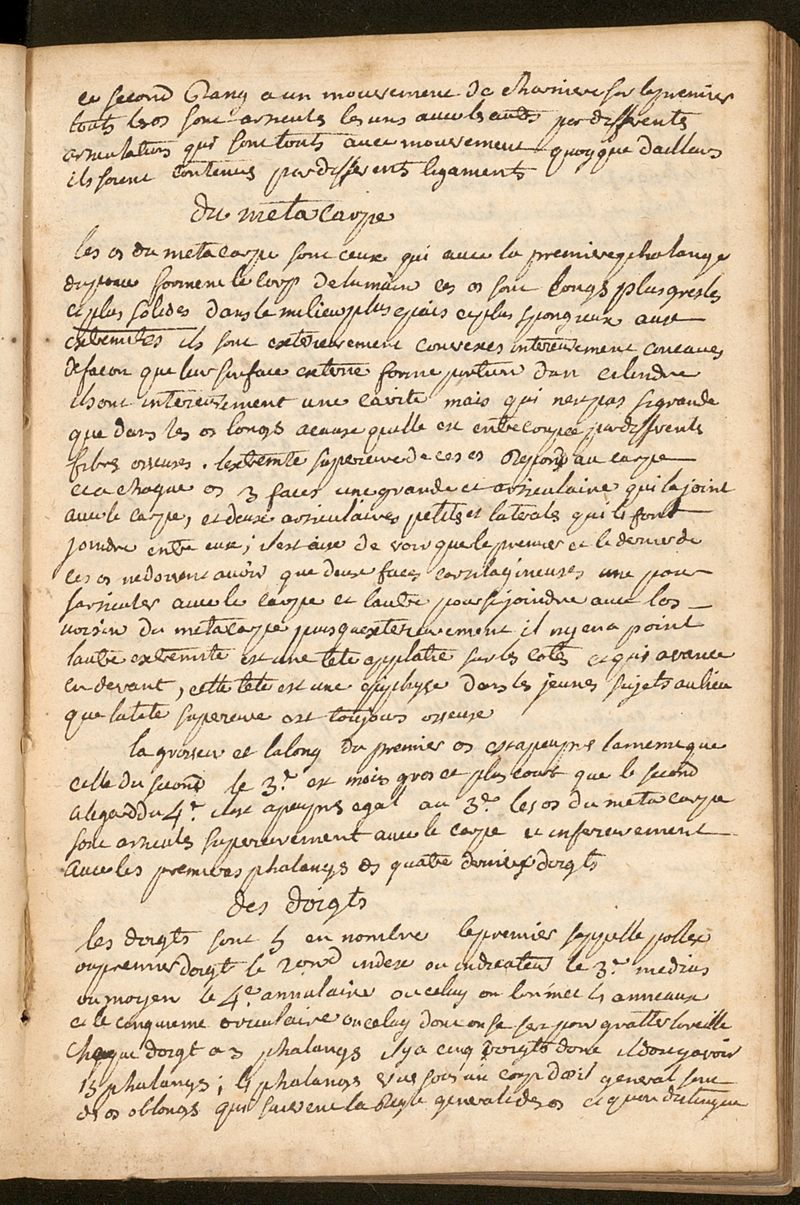 ce second Rang a un mouvement de charniere sur le premier
touts les os sont articulés les uns avec les autres par differents
articulations qui sont touts avec mouvement quoyque d'ailleurs
ils soient contenus par differents ligaments
du metacarpe
les os du metacarpe sont ceux qui avec la premiere phalange
du pouce forment le corp de la main ces os sont longs plus gresles
et plus solides dans le milieu plus epais et plus spongieux aux
extremites ils sont exterieurement convexes interieurement concaves
de facon que leur surface externe forme portion d'un cilindre
ils ont interieurement une cavité mais qui n'est pas si grande
que dans les os longs a cause qu'elle est entrecoupée par differents
fibres osseuses. l'extremite superieure de ces os Repond au carpe
et a chaque os 3 faces une grande et articulaire qui la joint
avec le carpe, et deux articulaires petites et laterals qui les font
joindre entre eux; il est aise de voir que le premier et le dernier de
ces os ne doivent avoir que deux faces cartilagineuses une pour
s'articuler avec le carpe et l'autre pour se joindre avec l'os
voisin du metacarpe puisqu'exterieurement il n'y en a point
l'autre extremite est une tete applatie sur les cotés et qui avance
en devant, cette tete est une epiphyse dans les jeunes sujets au lieu
que la tete superieure est toujours osseuse
la grosseur et la long du premier os est a peu pres la meme que
celle du second le 3.e est mois gros et plus court que le second
a legard du 4.e il est a peu pres egal au 3.e les os du metacarpe
sont articulés superieurement avec le carpe et inferieurement
avec les premieres phalanges des quatre derniers doigts
des doigts
les doigts sont 5 en nombre le premier s'appelle pollex
ou premier doigt le 2.ond index ou indicateur le 3.e medius
ou moyen le 4.e annulaire ou celuy ou l'on met les anneaux
et le cinquieme oriculaire ou celuy dont on se sert pour gratter l'oreille
chaque doigt a 3 phalangs il y a cinq doigts donc il doit y avoir
15 phalangs; les phalangs sous un general sont
des os oblongs qui suivent la Regle generale des os et qu'on distingue